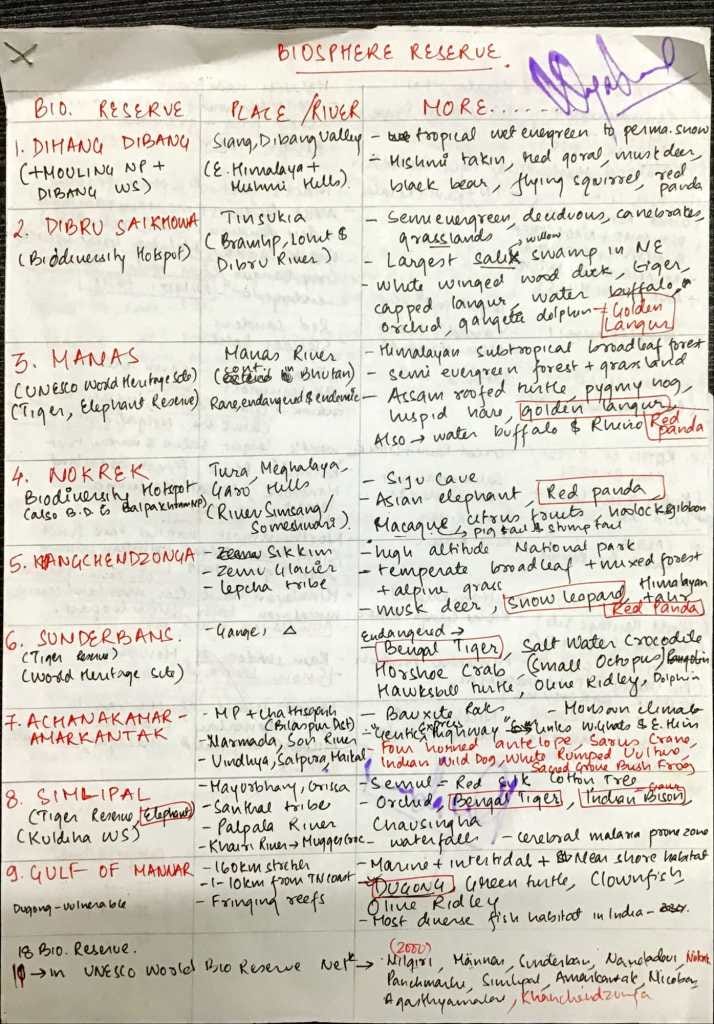 BIOSPHERE RESERVE.
BIO. RESERVE PLACE/RIVER MORE......
1. DIHANG DIBANG
(+MOULING NP +
DIBANG WS)
Siang, Dibang Valley
(E. Himalaya +
Mishmi Hills).
- tropical wet evergreen to perma. snow
- Mishmi takin, red goral, musk deer,
black bear, flying squirrel, red panda
2. DIBRU SAIKHOWA
(Biodiversity Hotspot)
Tinsukia
(Bramhp, Lohit &
Dibru River)
- Semi evergreen, deciduous, canebrakes,
grasslands
- Largest salix swamp in NE
willow
- White winged wood duck, tiger,
capped langur, water buffalo,
orchid, gangetic dolphin - Golden
Langur
3. MANAS
(UNESCO World Heritage Site)
(Tiger, Elephant Reserve)
Manas River
(conti. Bhutan)
Rare, endangered & endemic
- Himalayan subtropical broadleaf forest
- semi evergreen forest + grassland
- Assam roofed turtle, pygmy hog,
hispid hare, golden langur,
Also → water buffalo & Rhino Red panda
4. NOKREK
Biodiversity Hotspot
(also B.D is Balpakhram NP)
Tura, Meghalaya,
Garo Hills
(River Simsang/
Someshwari).
- Siju Cave
- Asian elephant, Red panda,
Macaque, citrus fruits, hoolock gibbon
→ pig tail & stump tail
5. KANGCHENDZONGA
- Sikkim
- Zemu Glacier
- lepcha tribe
- high altitude National park
- temperate broadleaf + mixed forest
+ alpine grass
- musk deer, Snow leopard, Himalayan
tahr
Red Panda
6. SUNDERBANS.
(Tiger Reserve)
(World Heritage Site)
- Gange, △
Endangered →
- Bengal Tiger, Salt Water Crocodile
Horshoe Crab (Small Octopus)
Hawksbill turtle, Olive Ridley, Dolphin
7. ACHANAKAMAR -
AMARKANTAK
- MP + Chattisgarh
(Bilaspur Dist)
- Narmada, Son River
- Vindhya, Satpura, Maikal
- Bauxite Raks - Monsoon climate
- "Genetic Express highway" links W.ghats & E. Him
- Four horned antelope, Sarus Crane,
Indian Wild Dog, White Rumped Vulture,
Sacred Grove Bush Frog
8. SIMLIPAL
(Tiger Reserve, Elephant)
(Kuldiha WS)
- Mayurbhanj, Orissa
- Santhal tribe
- Palpala River
- Khairi River → Mugger Croc
- Semul - Red Silk Cotton Tree
- Orchid, Bengal Tiger, Indian Bison,
Gaur
Chausingha
- waterfalls - cerebral malaria prone zone
9. GULF OF MANNAR
Dugong - vulnerable
- 160km stretch
- 1-10km from TN coast
- Fringing reefs
- Marine + intertidal + Near shore habitat
- DUGONG, Green turtle, Clownfish
Olive Ridley
- Most diverse fish habitat in India
18 Bio. Reserve.
→ in UNESCO World Bio Reserve Netk → Nilgiri, Mannar, Sunderban, Nandadevi, Nokrek
(2000)
Panchmarhi, Simlipal, Amarkantak, Nicobar,
Agasthyamalai, Khanchendzonga